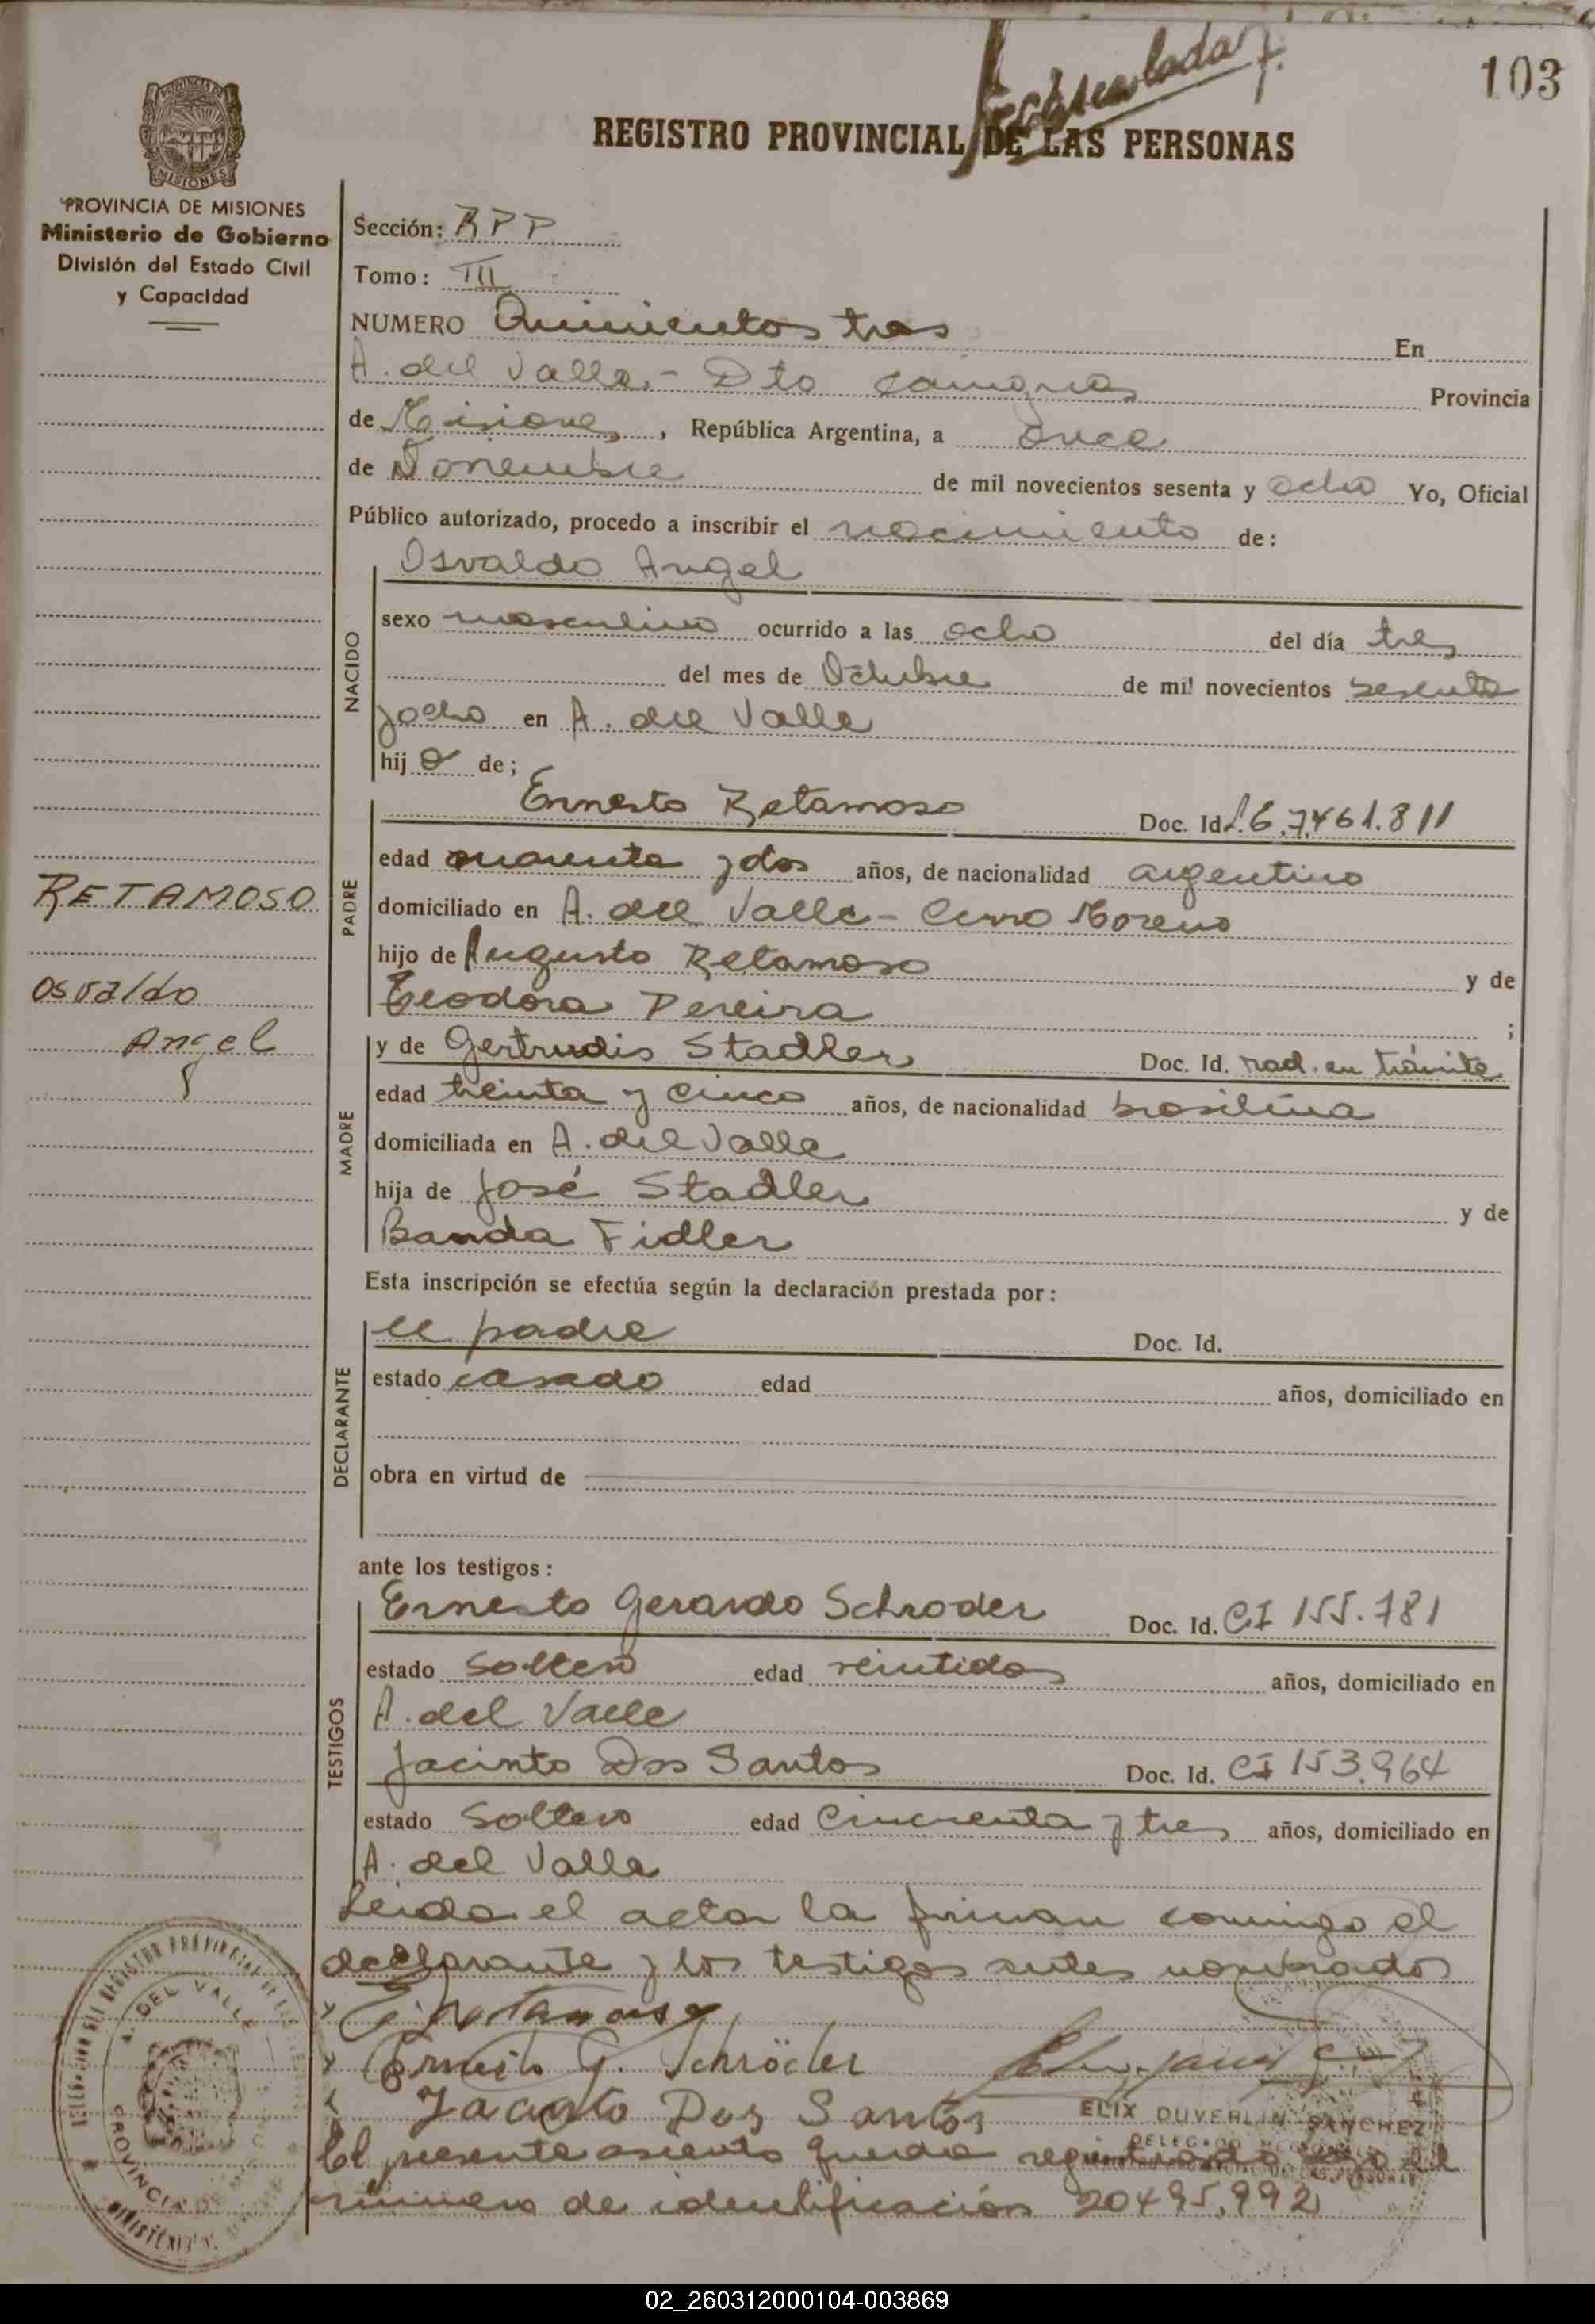 103
REGISTRO PROVINCIAL DE LAS PERSONAS
PROVINCIA DE MISIONES
Ministerio de Gobierno
División del Estado Civil
y Capacidad
Sección: RPP
Tomo: III
NUMERO Quinientos tres En
A. del Valle.- Dto Cainguas Provincia
de Misiones, República Argentina, a once
de Noviembre de mil novecientos sesenta y ocho Yo, Oficial
Público autorizado, procedo a inscribir el nacimiento de:
Osvaldo Angel
NACIDO
sexo masculino ocurrido a las ocho del día tres
del mes de Octubre de mil novecientos sesenta
y ocho en A. del Valle
hijo de;
Ernesto Retamoso Doc. Id L.E. 7.461.811
PADRE
edad cuarenta y dos años, de nacionalidad argentino
domiciliado en A. del Valle - Cerro Moreno
hijo de Augusto Retamoso y de
Teodora Pereira ;
RETAMOSO
Osvaldo
Angel
y de Gertrudis Stadler Doc. Id. rad. en trámite
MADRE
edad treinta y cinco años, de nacionalidad brasileña
domiciliada en A. del Valle
hija de José Stadler y de
Banda Fidler
Esta inscripción se efectúa según la declaración prestada por:
el padre Doc. Id.
DECLARANTE
estado casado edad años, domiciliado en
obra en virtud de
ante los testigos:
Ernesto Gerardo Schroder Doc. Id. CI 155.781
TESTIGOS
estado Soltero edad veintidos años, domiciliado en
A. del Valle
Jacinto Dos Santos Doc. Id. CI 153.964
estado Soltero edad cincuenta y tres años, domiciliado en
A. del Valle
Leida el acta la firman conmigo el
declarante y los testigos antes nombrados
E. Retamoso
Ernesto G. Schröder
Jacinto Dos Santos
ELIX DUVERLIN SANCHEZ
El presente asiento queda registrado bajo el
número de identificación 20495.992
A. DEL VALLE
02_260312000104-003869